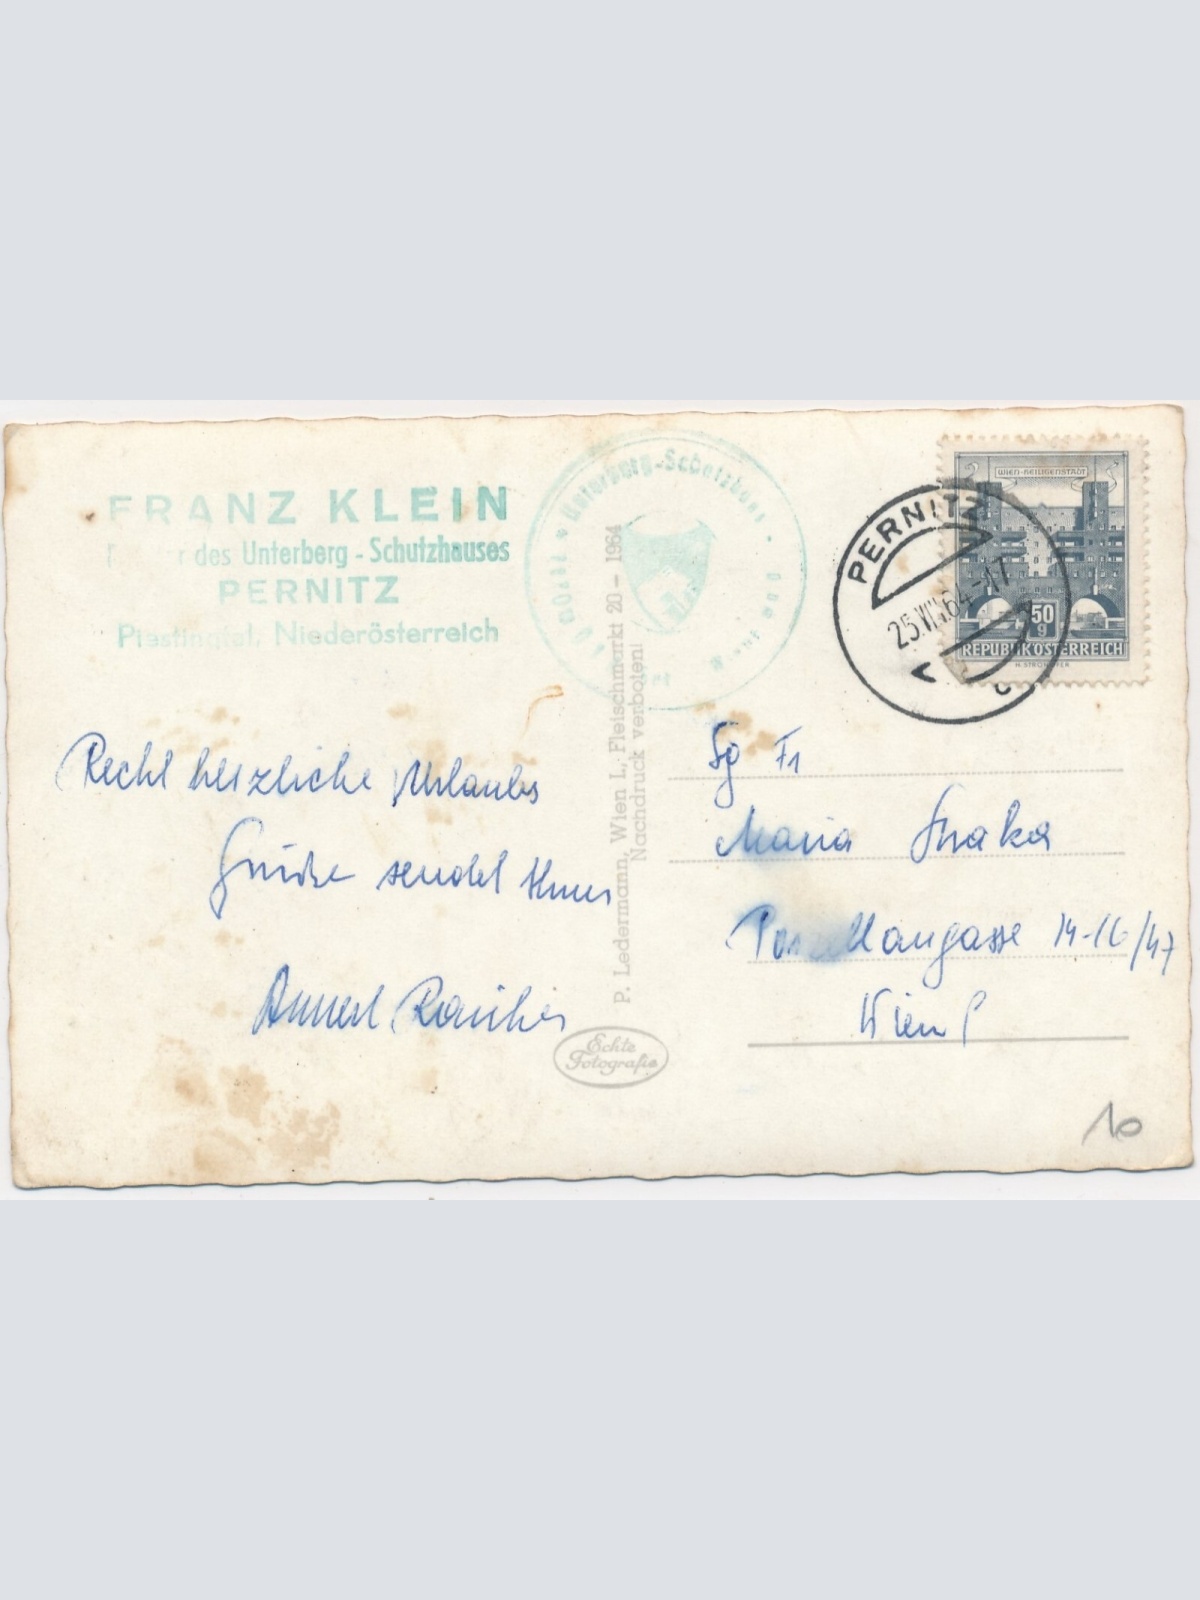 FRANZ KLEIN
des Unterberg - Schutzhauses
PERNITZ
Piestingtal, Niederösterreich
Unterberg-Schutzhaus
PERNITZ
25.VIII.64-17
WIEN-HEILIGENSTADT
50
g
REPUBLIK ÖSTERREICH
P. Ledermann, Wien I., Fleischmarkt 20 - 1964
Nachdruck verboten!
Echte
Fotografie
Recht herzliche Urlaubs
Grüße sendet Ihnen
Annerl
Sg Fr
Maria Straka
Porzellangasse 14-16/47
Wien
10